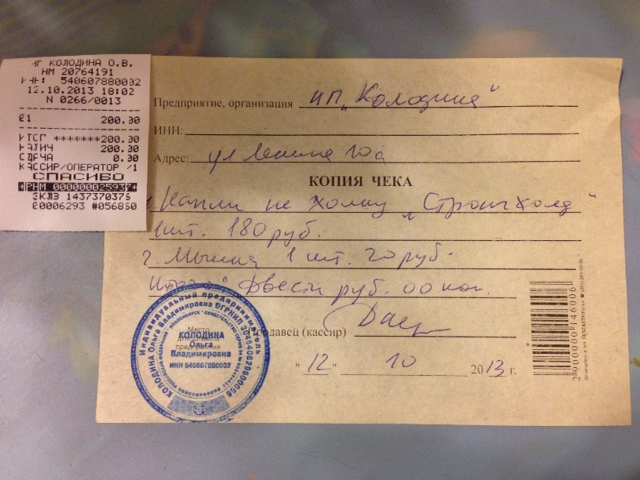 ИП КОЛОДИНА О.В.
НМ 20764191
ИНН: 540607880032
12.10.2013 18:02
N 0266/0013
01 200.00
ИТОГ *******200.00
НАЛИЧ 200.00
СДАЧА 0.00
КАССИР/ОПЕРАТОР /1
СПАСИБО
*РНМ 000000025937*
ЭКЛЗ 1437370375
00006293 #056850
Предприятие, организация ИП "Колодина"
ИНН:
Адрес: ул Ленина 10а
КОПИЯ ЧЕКА
Капли на холку "Стронгхолд"
1шт. 180 руб.
2. Мышка 1 шт. 20 руб.
Итого: Двести руб. 00 коп.
Продавец (кассир)
"12" 10 2013 г.
Индивидуальный предприниматель
КОЛОДИНА Ольга Владимировна ОГРНИП
Место
КОЛОДИНА
Ольга
Владимировна
ИНН 540607880032
2900000146006